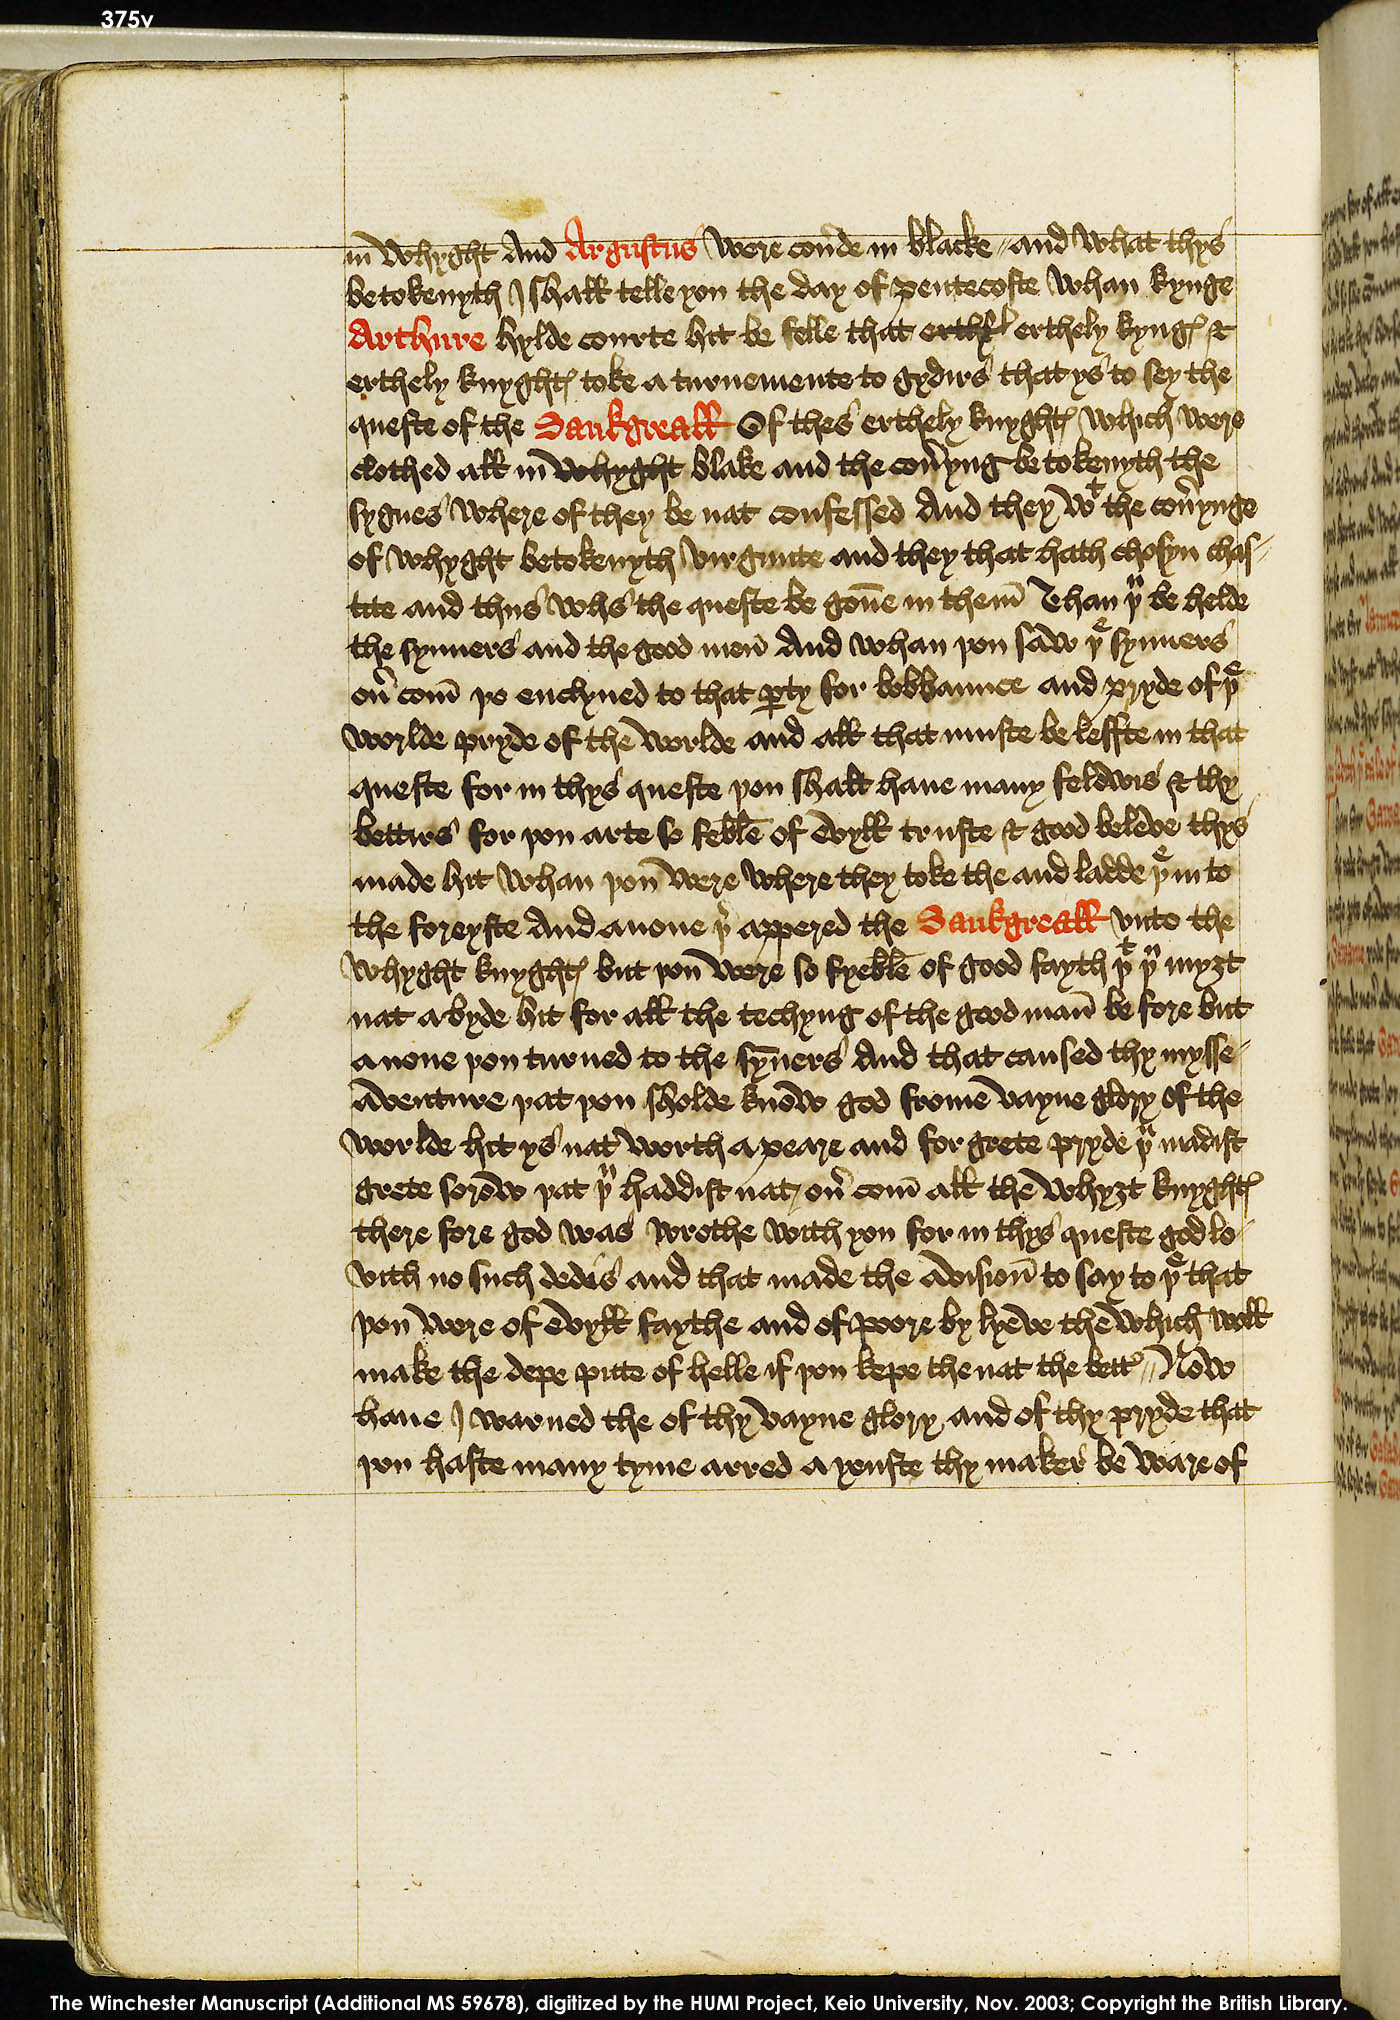 375v
in whyght And Argustus were cou'de in blacke // and what thys
be tokenyth I shall telle you the day of pentecoste whan kynge
Arthure hylde courte hit be felle that erthly erthely kyngꝭ &
erthely knyghtꝭ toke a turnemente to gydirs that ys to sey the
queste of the Sankgreall Of thes erthely knyghtꝭ which were
clothed all in whyght blake and the cou'yng be tokenyth the
synnes where of they be nat confessed And they wᵗ the cou'ynge
of whyght betokenyth virginite and they that hath chosyn chas-
tite and thus whs the queste be gon̄e in them̄ Than þᵘ be helde
the synners and the good men̄ And whan þou saw þᵉ synners
ou'com̄ þo enclyned to that ꝑty for bobbaunce and pryde of þᵉ
worlde pryde of the worlde and all that muste be leffte in that
queste for in thys queste þou shalt haue many felowis & thy
bettirs for þou arte so feble of evyll truste & good beleve thys
made hit whan þou were where they toke the and ladde þᵉ in to
the foreyste And anone þ' appered the Sankgreall vnto the
whyght knyghtꝭ but þou were so fyeble of good fayth þᵗ þᵘ myȝt
nat a byde hit for all the techyng of the good man̄ be fore but
anone þou turned to the syn̄ers And that caused thy mysse-
aventure þat þou sholde know god frome vayne glory of the
worlde hit ys nat worth a peare and for grete pryde þᵘ madist
grete sorow þat þᵘ haddist nat ou'com̄ all the whyȝt knyghtꝭ
there fore god was wrothe with you for in thys queste god lo-
vith no such dedis and that made the avision̄ to say to þᵉ that
þou were of evyll faythe and of poore by lyeve the which woll
make the depe pitte of helle if þou kepe the nat the bett' // Now
haue I warned the of thy vayne glory and of thy pryde that
þou haste many tyme arred ayenste thy maker be ware of
The Winchester Manuscript (Additional MS 59678), digitized by the HUMI Project, Keio University, Nov. 2003; Copyright the British Library.